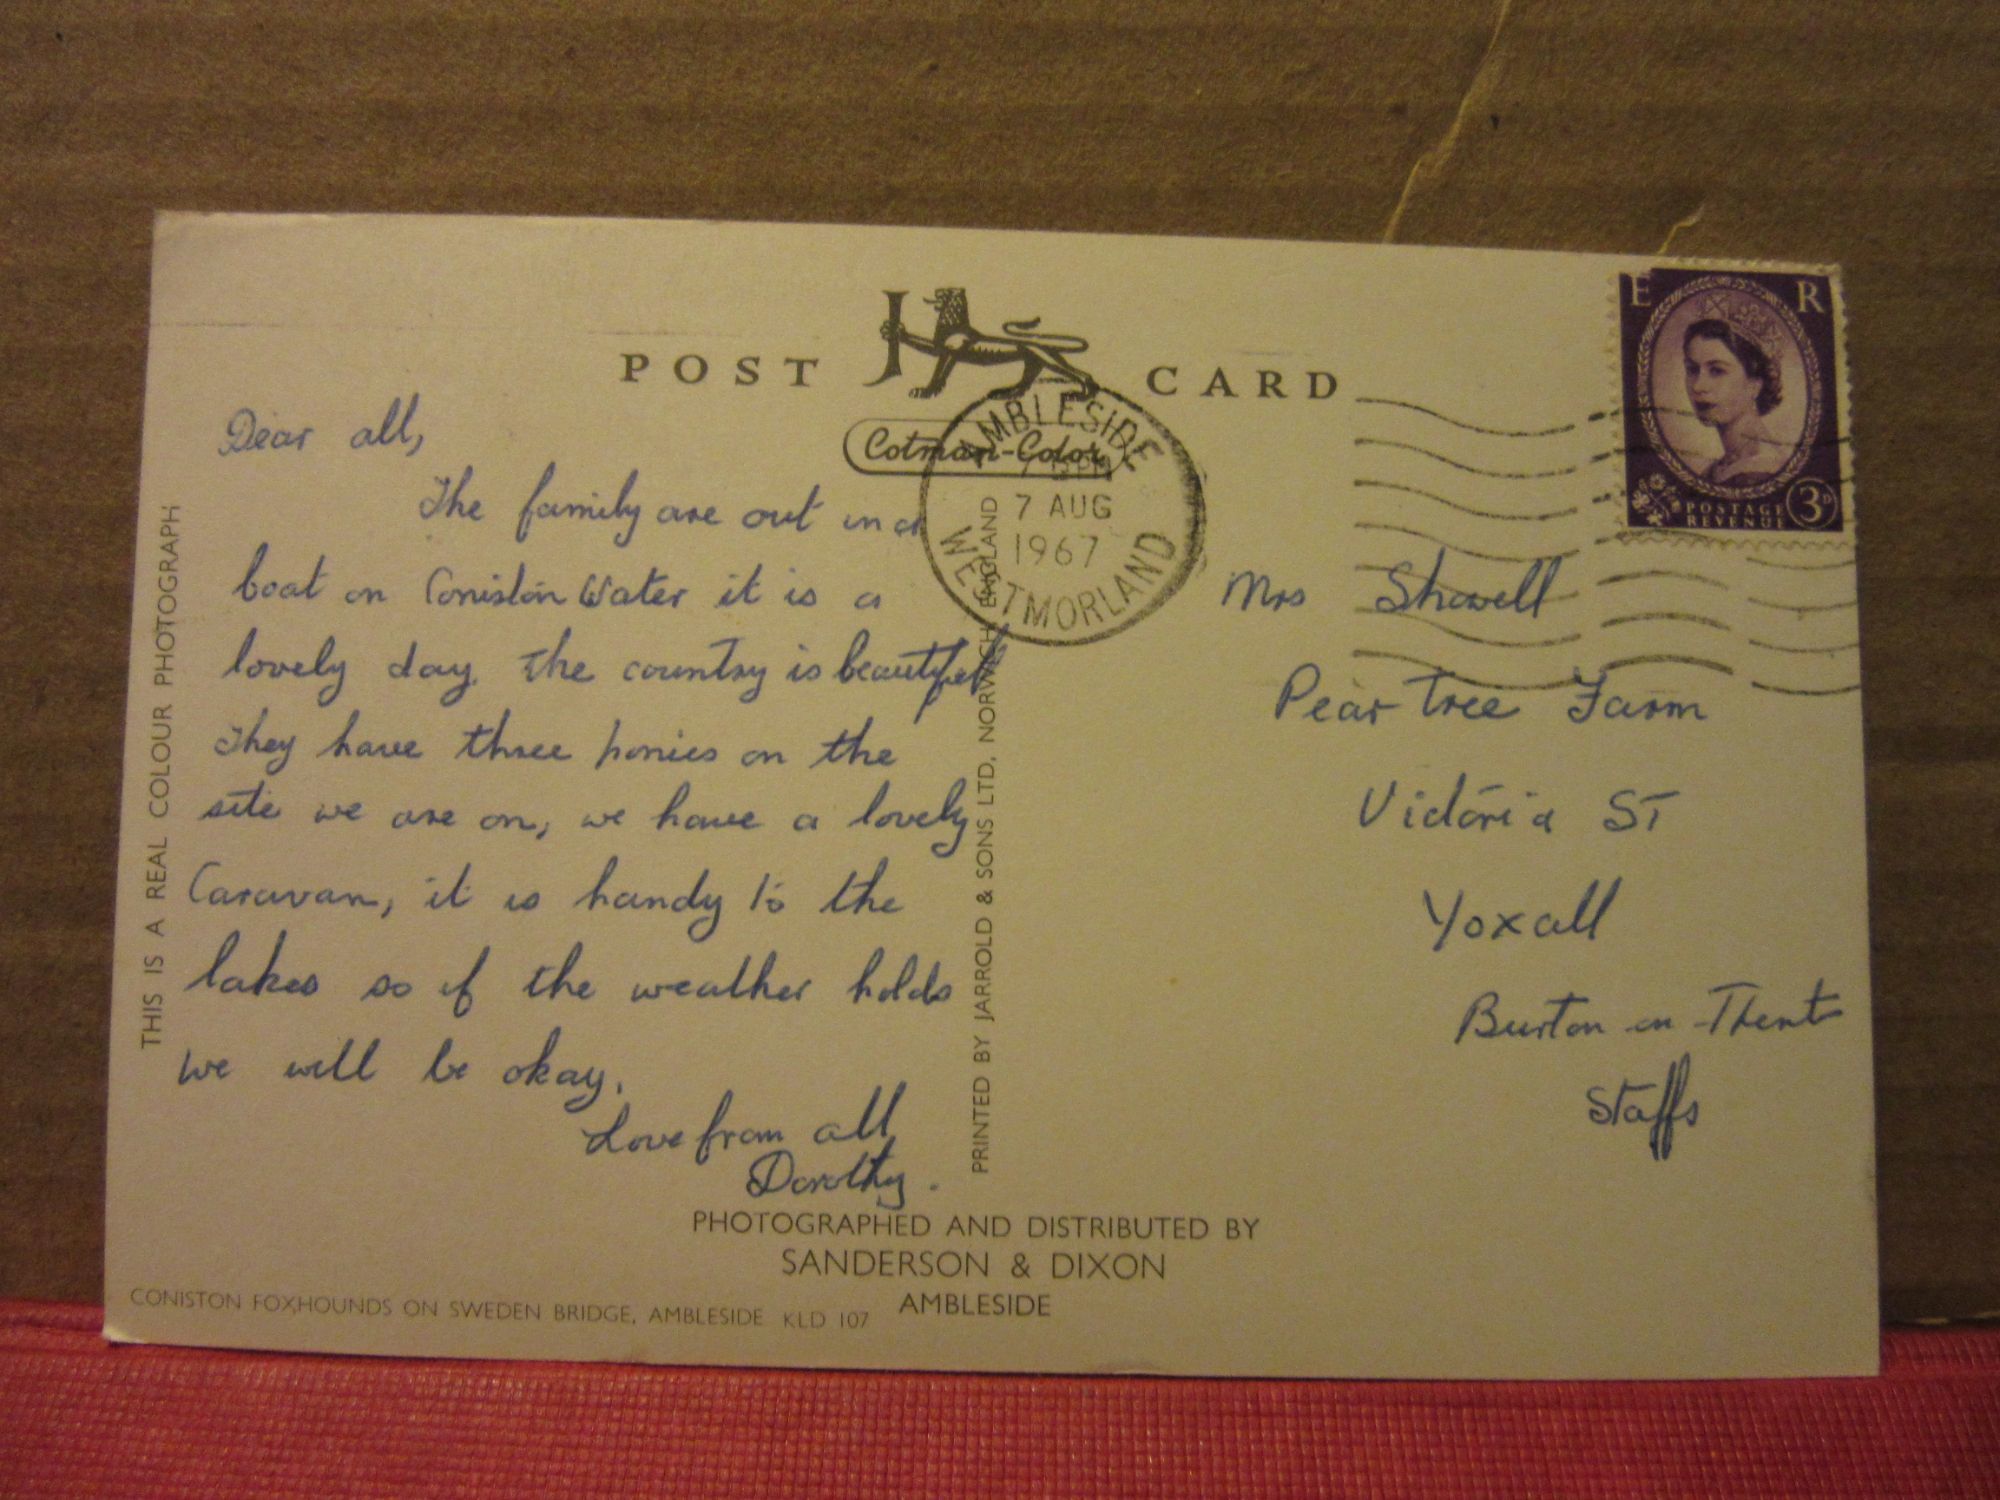 POST CARD
Cotman-Color
AMBLESIDE
7 AUG
1967
WESTMORLAND
E R
POSTAGE
REVENUE
3D
Dear all,
The family are out in a
boat on Coniston Water it is a
lovely day. The country is beautiful
They have three ponies on the
site we are on, we have a lovely
Caravan, it is handy to the
lakes so if the weather holds
we will be okay.
Love from all
Dorothy.
Mrs Showell
Pear Tree Farm
Victoria ST
Yoxall
Burton on Trent
Staffs
THIS IS A REAL COLOUR PHOTOGRAPH
PRINTED BY JARROLD & SONS LTD, NORWICH ENGLAND
PHOTOGRAPHED AND DISTRIBUTED BY
SANDERSON & DIXON
AMBLESIDE
CONISTON FOXHOUNDS ON SWEDEN BRIDGE, AMBLESIDE KLD 107